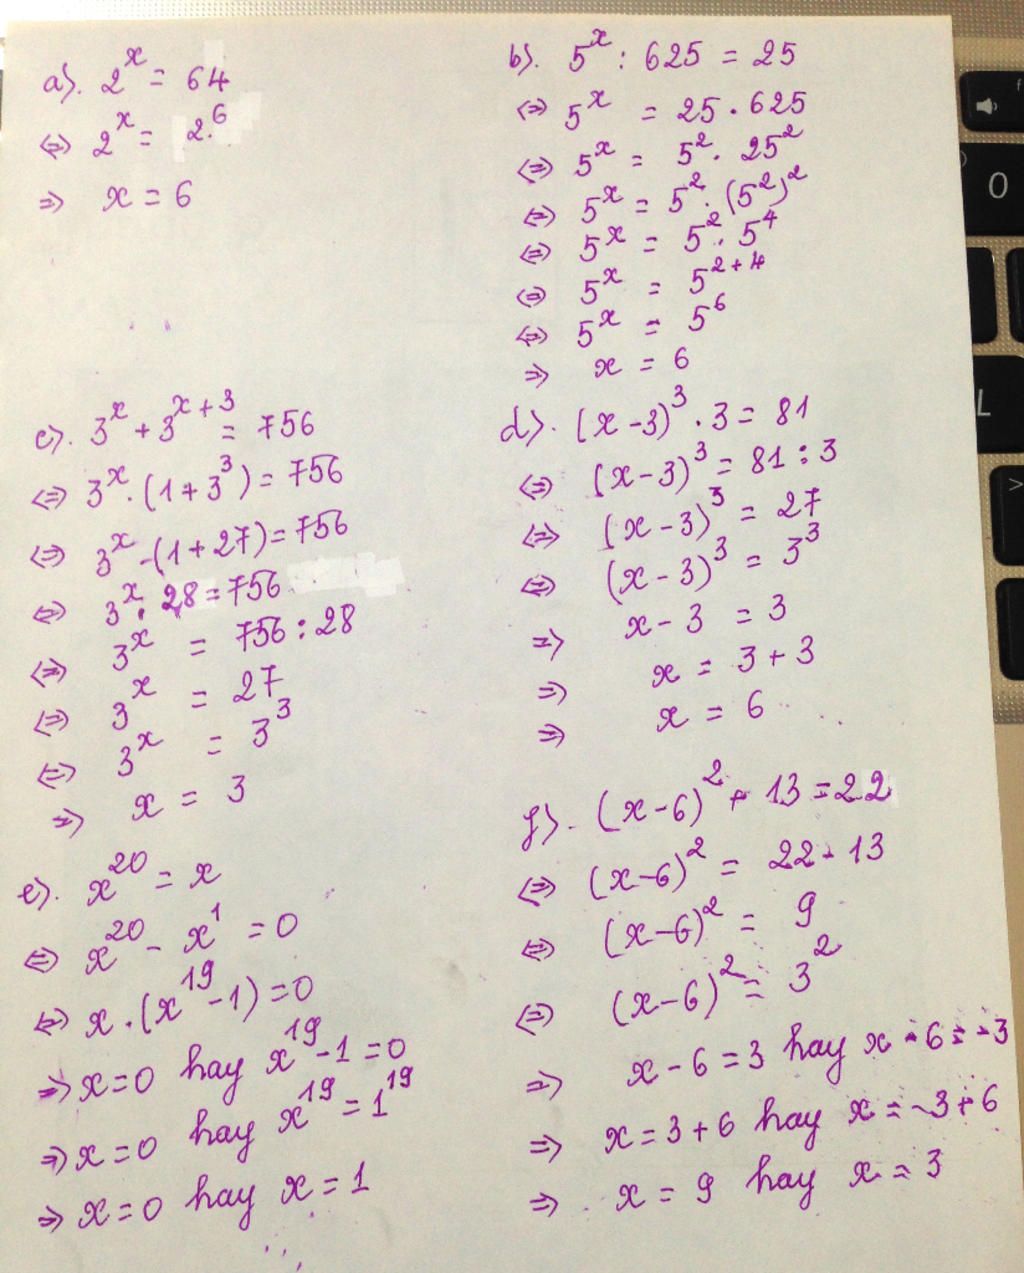 a). 2^x = 64
⇔ 2^x = 2^6
⇒ x = 6
b). 5^x : 625 = 25
⇔ 5^x = 25 . 625
⇔ 5^x = 5^2 . 25^2
⇔ 5^x = 5^2 . (5^2)^2
⇔ 5^x = 5^2 . 5^4
⇔ 5^x = 5^{2+4}
⇔ 5^x = 5^6
⇒ x = 6
c). 3^x + 3^{x+3} = 756
⇔ 3^x . (1+3^3) = 756
⇔ 3^x . (1+27) = 756
⇔ 3^x . 28 = 756
⇔ 3^x = 756 : 28
⇔ 3^x = 27
⇔ 3^x = 3^3
⇒ x = 3
d). (x-3)^3 . 3 = 81
⇔ (x-3)^3 = 81 : 3
⇔ (x-3)^3 = 27
⇔ (x-3)^3 = 3^3
⇒ x-3 = 3
⇒ x = 3+3
⇒ x = 6
e). x^20 = x
⇔ x^20 - x^1 = 0
⇔ x . (x^19 - 1) = 0
⇒ x=0 hay x^19 - 1 = 0
⇒ x=0 hay x^19 = 1^19
⇒ x=0 hay x = 1
f). (x-6)^2 + 13 = 22
⇔ (x-6)^2 = 22 - 13
⇔ (x-6)^2 = 9
⇔ (x-6)^2 = 3^2
⇒ x-6 = 3 hay x-6 = -3
⇒ x = 3+6 hay x = -3+6
⇒ x = 9 hay x = 3
O
L
>
f